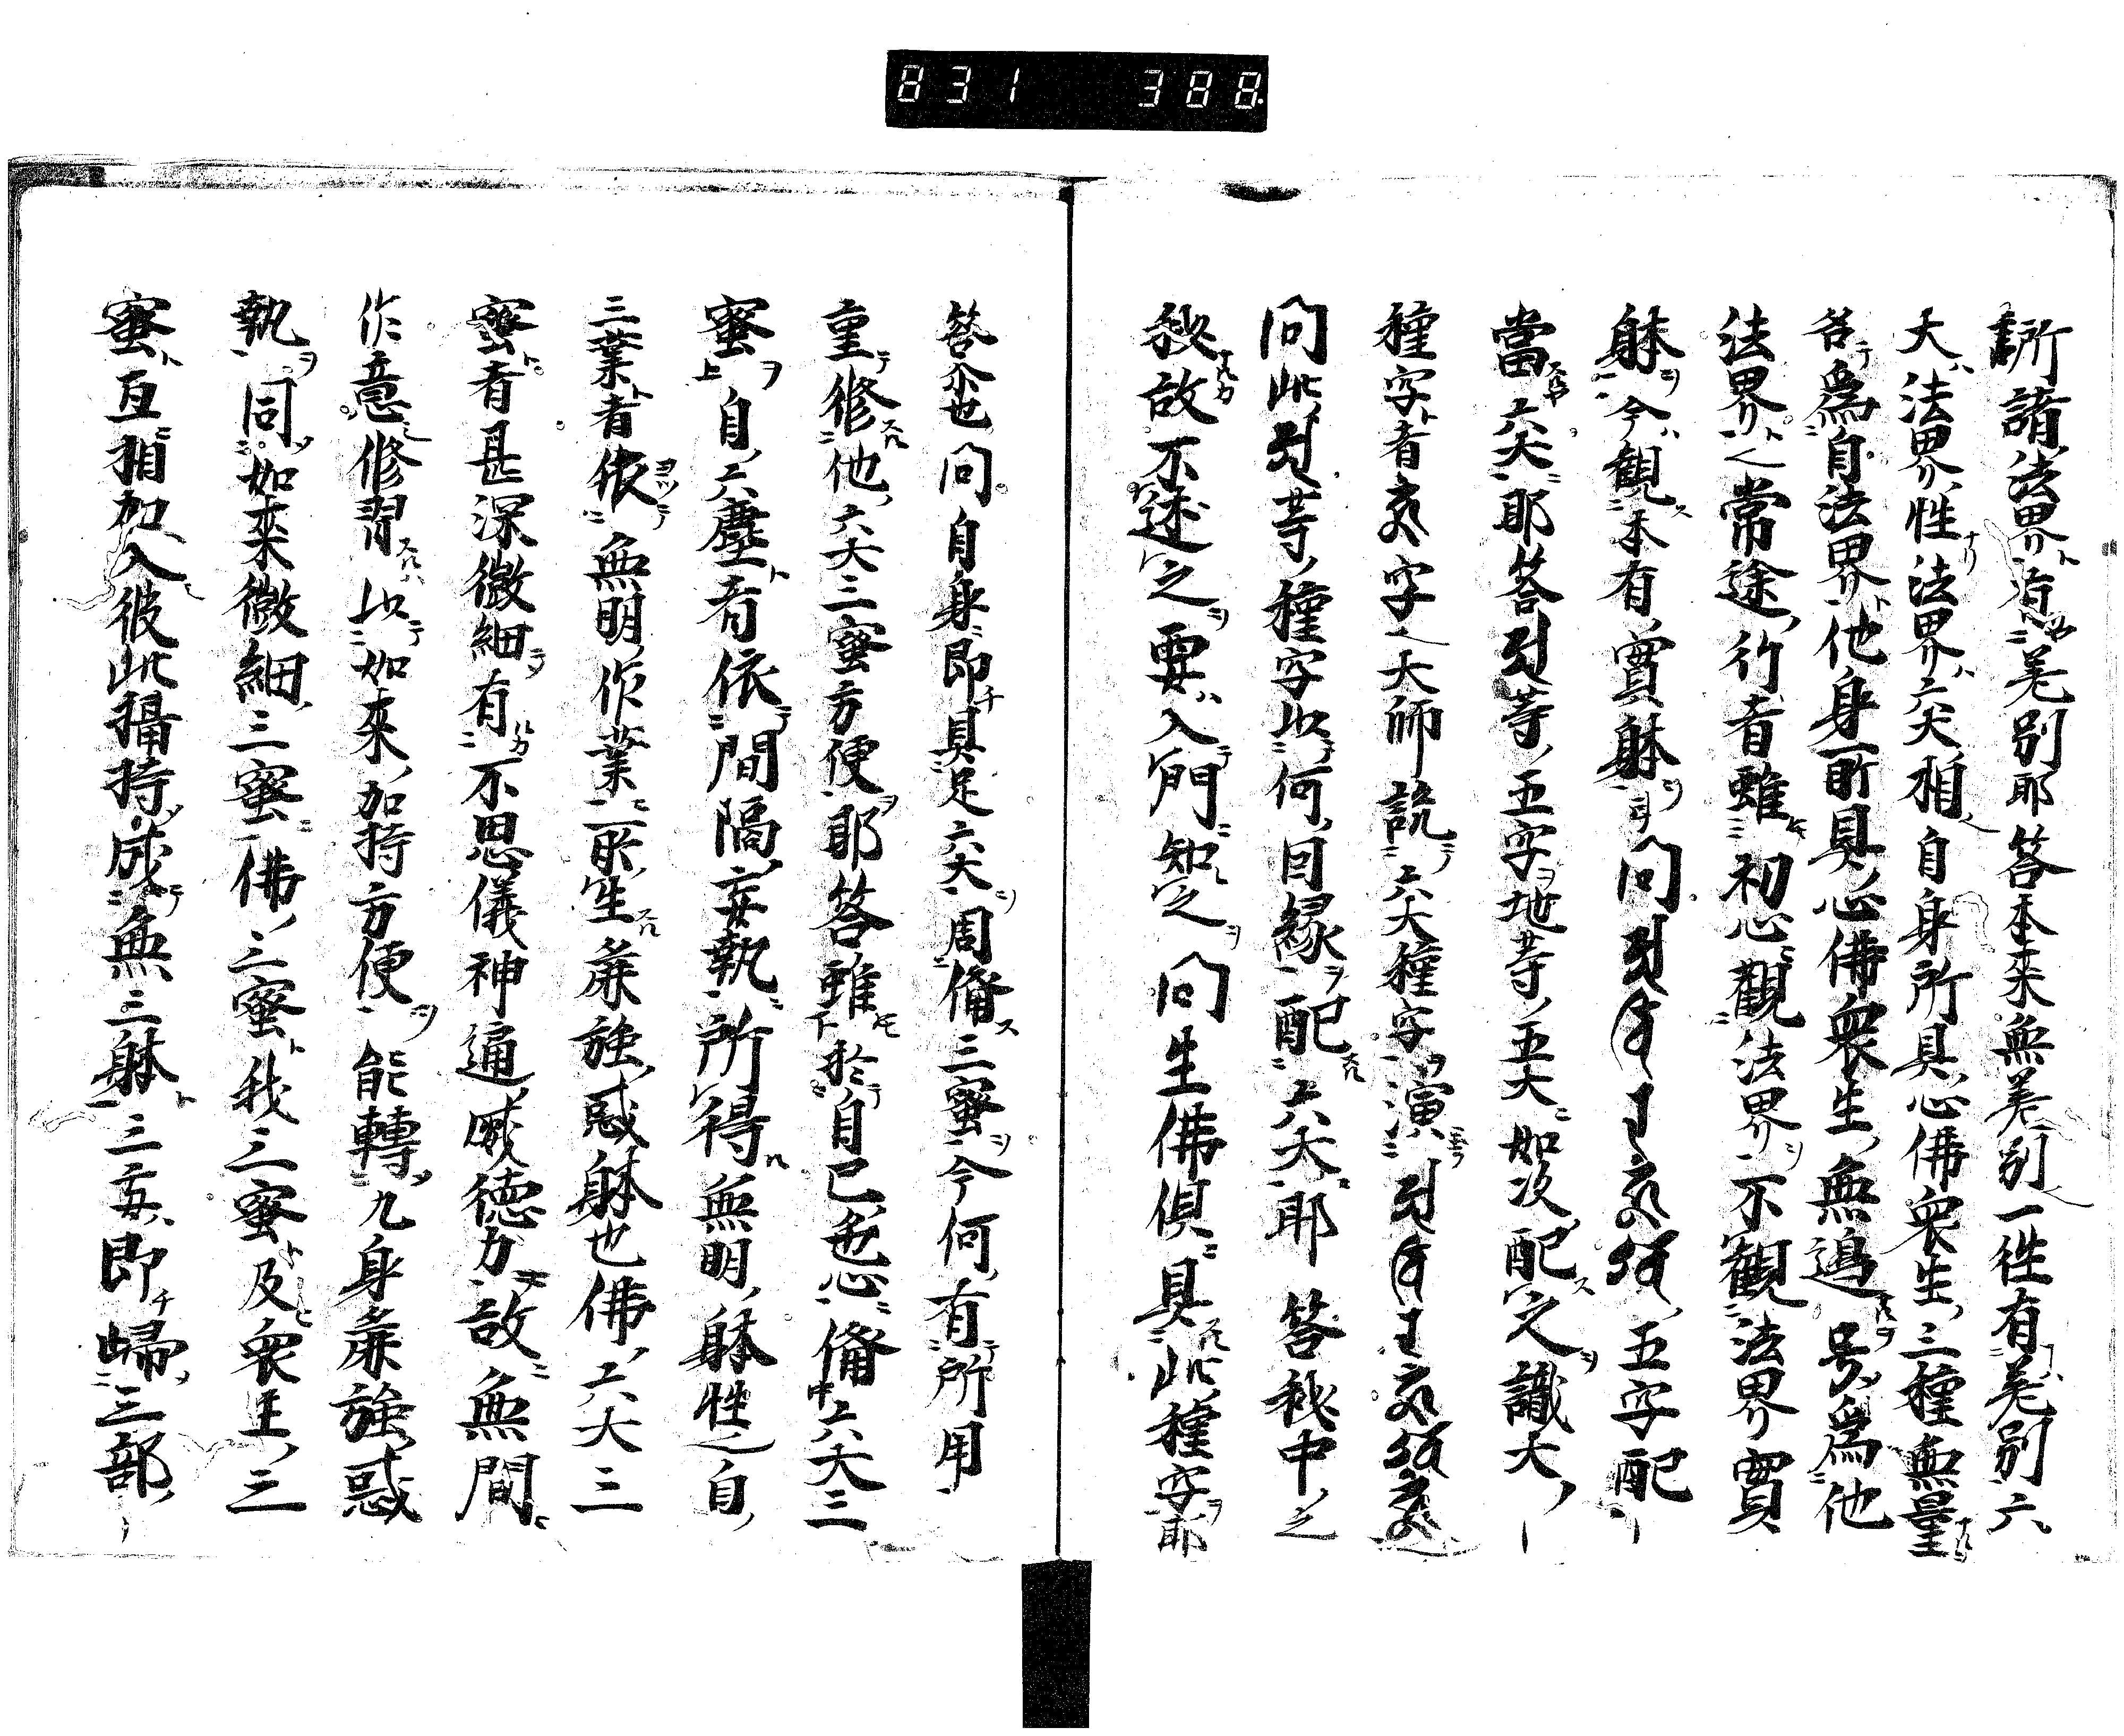 831 388
訴諸法界有差別耶答本来無差別一往有差別六
大法界性法界六大相自身所具心佛衆生三種無量
名為自法界他身所具心佛衆生無邊号為他
法界之常途行者雖初心觀法界不觀法界實
躰今觀本有實躰耳問 五字配
當六大耶答 等五字地等五大如次配之識大
種字者 字大師説六大種字演
問此 等種字以何因縁配六大耶 答秘中之
秘故不述之要入門知之 問生佛倶具此種字耶
答尒也問自身即具足六大周備三蜜今何有所用
重修他六大三蜜方便耶答雖於自己心備六大三
蜜自六塵者依間隔妄執所得無明躰性自
三業者依無明作業所生麁強惑躰也佛六大三
蜜者甚深微細有不思儀神通威徳力故無間
作意修習以如來加持方便能轉凡身麁強惑
執同如來微細三蜜佛三蜜我三蜜及衆生三
蜜互相加入彼此攝持成無三躰三妄即歸三部